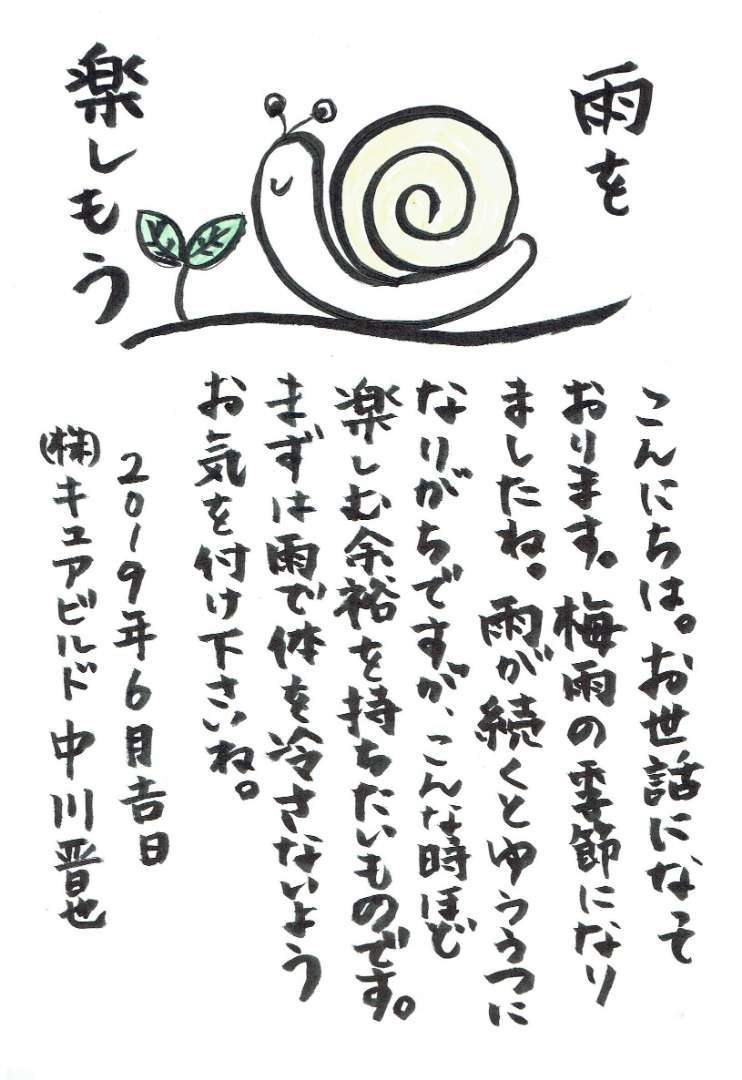 雨を
楽しもう
こんにちは。お世話になって
おります。梅雨の季節になり
ましたね。雨が続くとゆううつに
なりがちですが、こんな時ほど
楽しむ余裕を持ちたいものです。
まずは雨で体を冷さないよう
お気を付け下さいね。
2019年6月吉日
㈱キュアビルド 中川晋也